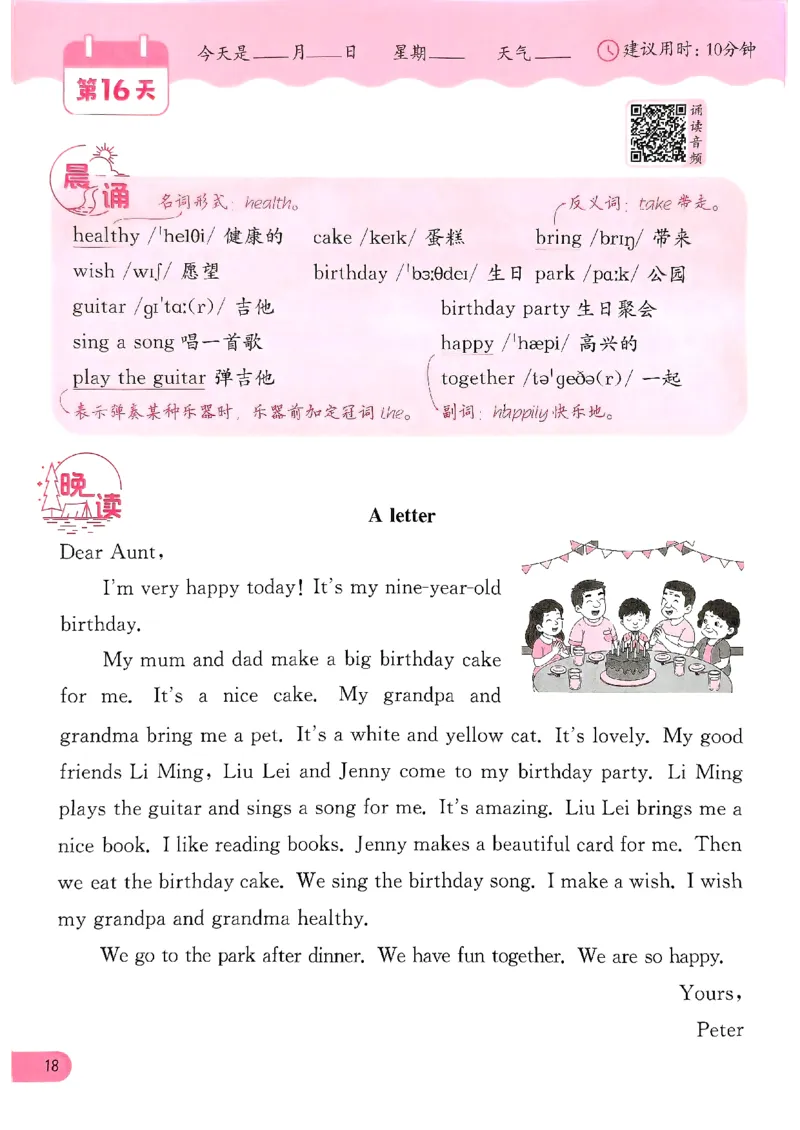 今天是____月____日 星期____ 天气____ 建议用时：10分钟
第16天
诵读音频
晨诵
名词形式：health。 反义词：take 带走。
healthy /ˈhelθi/ 健康的 cake /keɪk/ 蛋糕 bring /brɪŋ/ 带来
wish /wɪʃ/ 愿望 birthday /ˈbɜːθdeɪ/ 生日 park /pɑːk/ 公园
guitar /ɡɪˈtɑː(r)/ 吉他 birthday party 生日聚会
sing a song 唱一首歌 happy /ˈhæpi/ 高兴的
play the guitar 弹吉他 together /təˈɡeðə(r)/ 一起
表示弹奏某种乐器时，乐器前加定冠词 the。 副词：happily 快乐地。
晚读
A letter
Dear Aunt,
I'm very happy today! It's my nine-year-old
birthday.
My mum and dad make a big birthday cake
for me. It's a nice cake. My grandpa and
grandma bring me a pet. It's a white and yellow cat. It's lovely. My good
friends Li Ming, Liu Lei and Jenny come to my birthday party. Li Ming
plays the guitar and sings a song for me. It's amazing. Liu Lei brings me a
nice book. I like reading books. Jenny makes a beautiful card for me. Then
we eat the birthday cake. We sing the birthday song. I make a wish. I wish
my grandpa and grandma healthy.
We go to the park after dinner. We have fun together. We are so happy.
Yours,
Peter
18